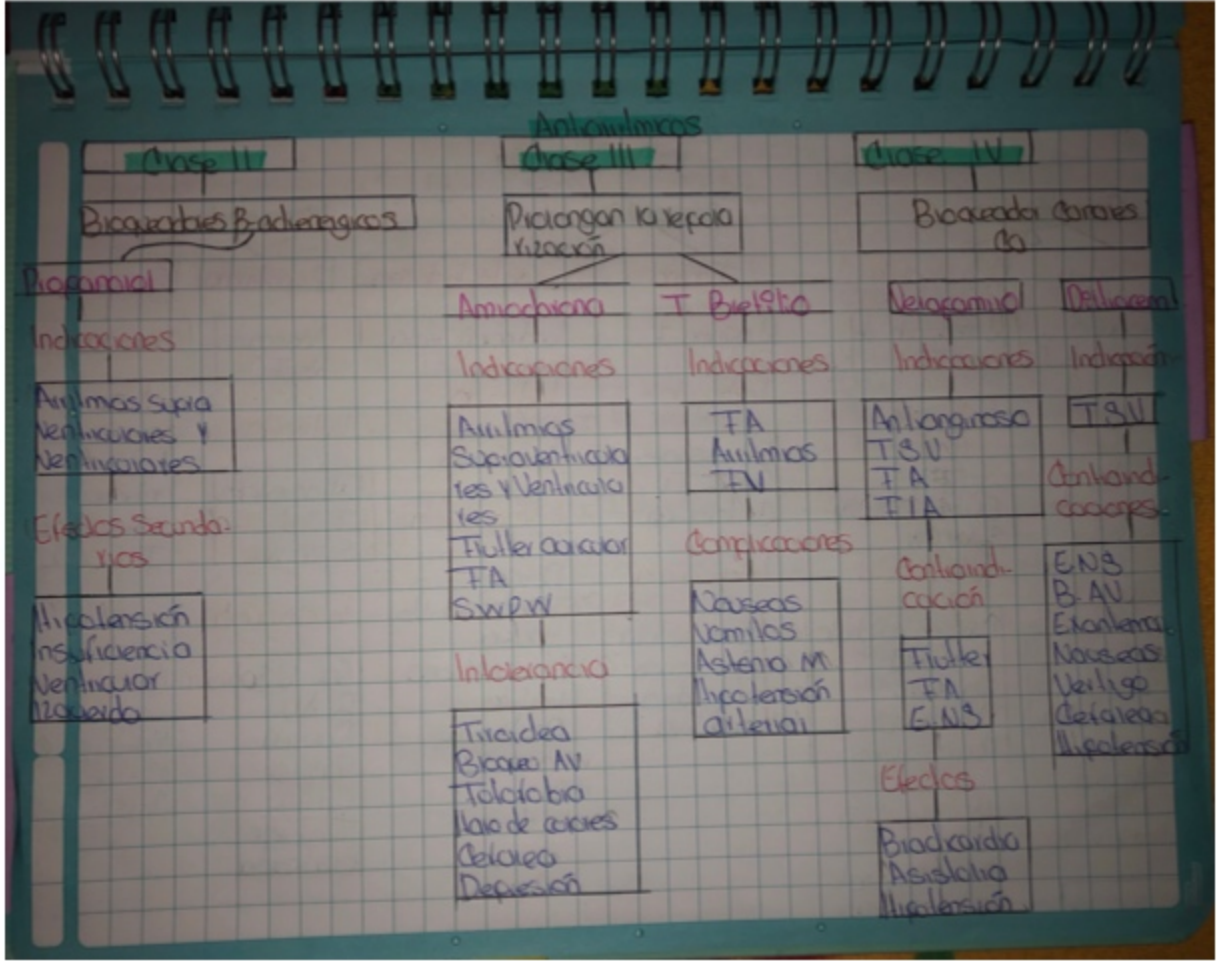 Antiarritmicos
Clase II
Bloqueadores B-adrenergicos
Propanolol
Indicaciones
Arritmias supra
Ventriculares y
Ventriculares
Efectos Secunda-
rios
Hipotensión
Insuficiencia
Ventricular
Izquierda
Clase III
Prolongan la repola
rización
Amiodarona
Indicaciones
Arritmias
Supraventricula
res y Ventricula
res
Flutter auricular
FA
SWPW
Intolerancia
Tiroidea
Bloqueo AV
Fotofobia
Halo de colores
Cefalea
Depresión
T Bretilio
Indicaciones
FA
Arritmias
FV
Complicaciones
Nauseas
Vomitos
Astenia M
Hipotensión
arterial
Clase IV
Bloqueador Canales
Ca
Verapamilo
Indicaciones
Antianginoso
TSV
FA
Contraindi-
cación
Flutter
FA
ENS
Efectos
Bradicardia
Asistolia
Hipotensión
Diltiacem
Indicación
TSV
Contraindi-
caciones
ENS
B. AV
Exantema
Nauseas
Vertigo
Cefalea
Hipotensión